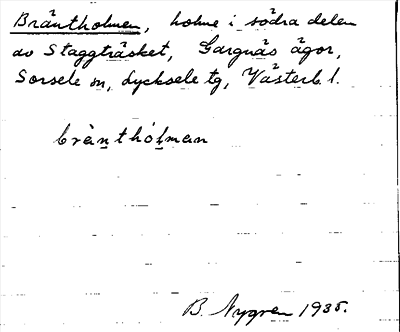 Bräntholmen, holme i södra delen
av Staggträsket, Gargnäs ägor,
Sorsele sn, Lycksele tg, Västerb. l.
bräntholman
B. Nygren 1935.